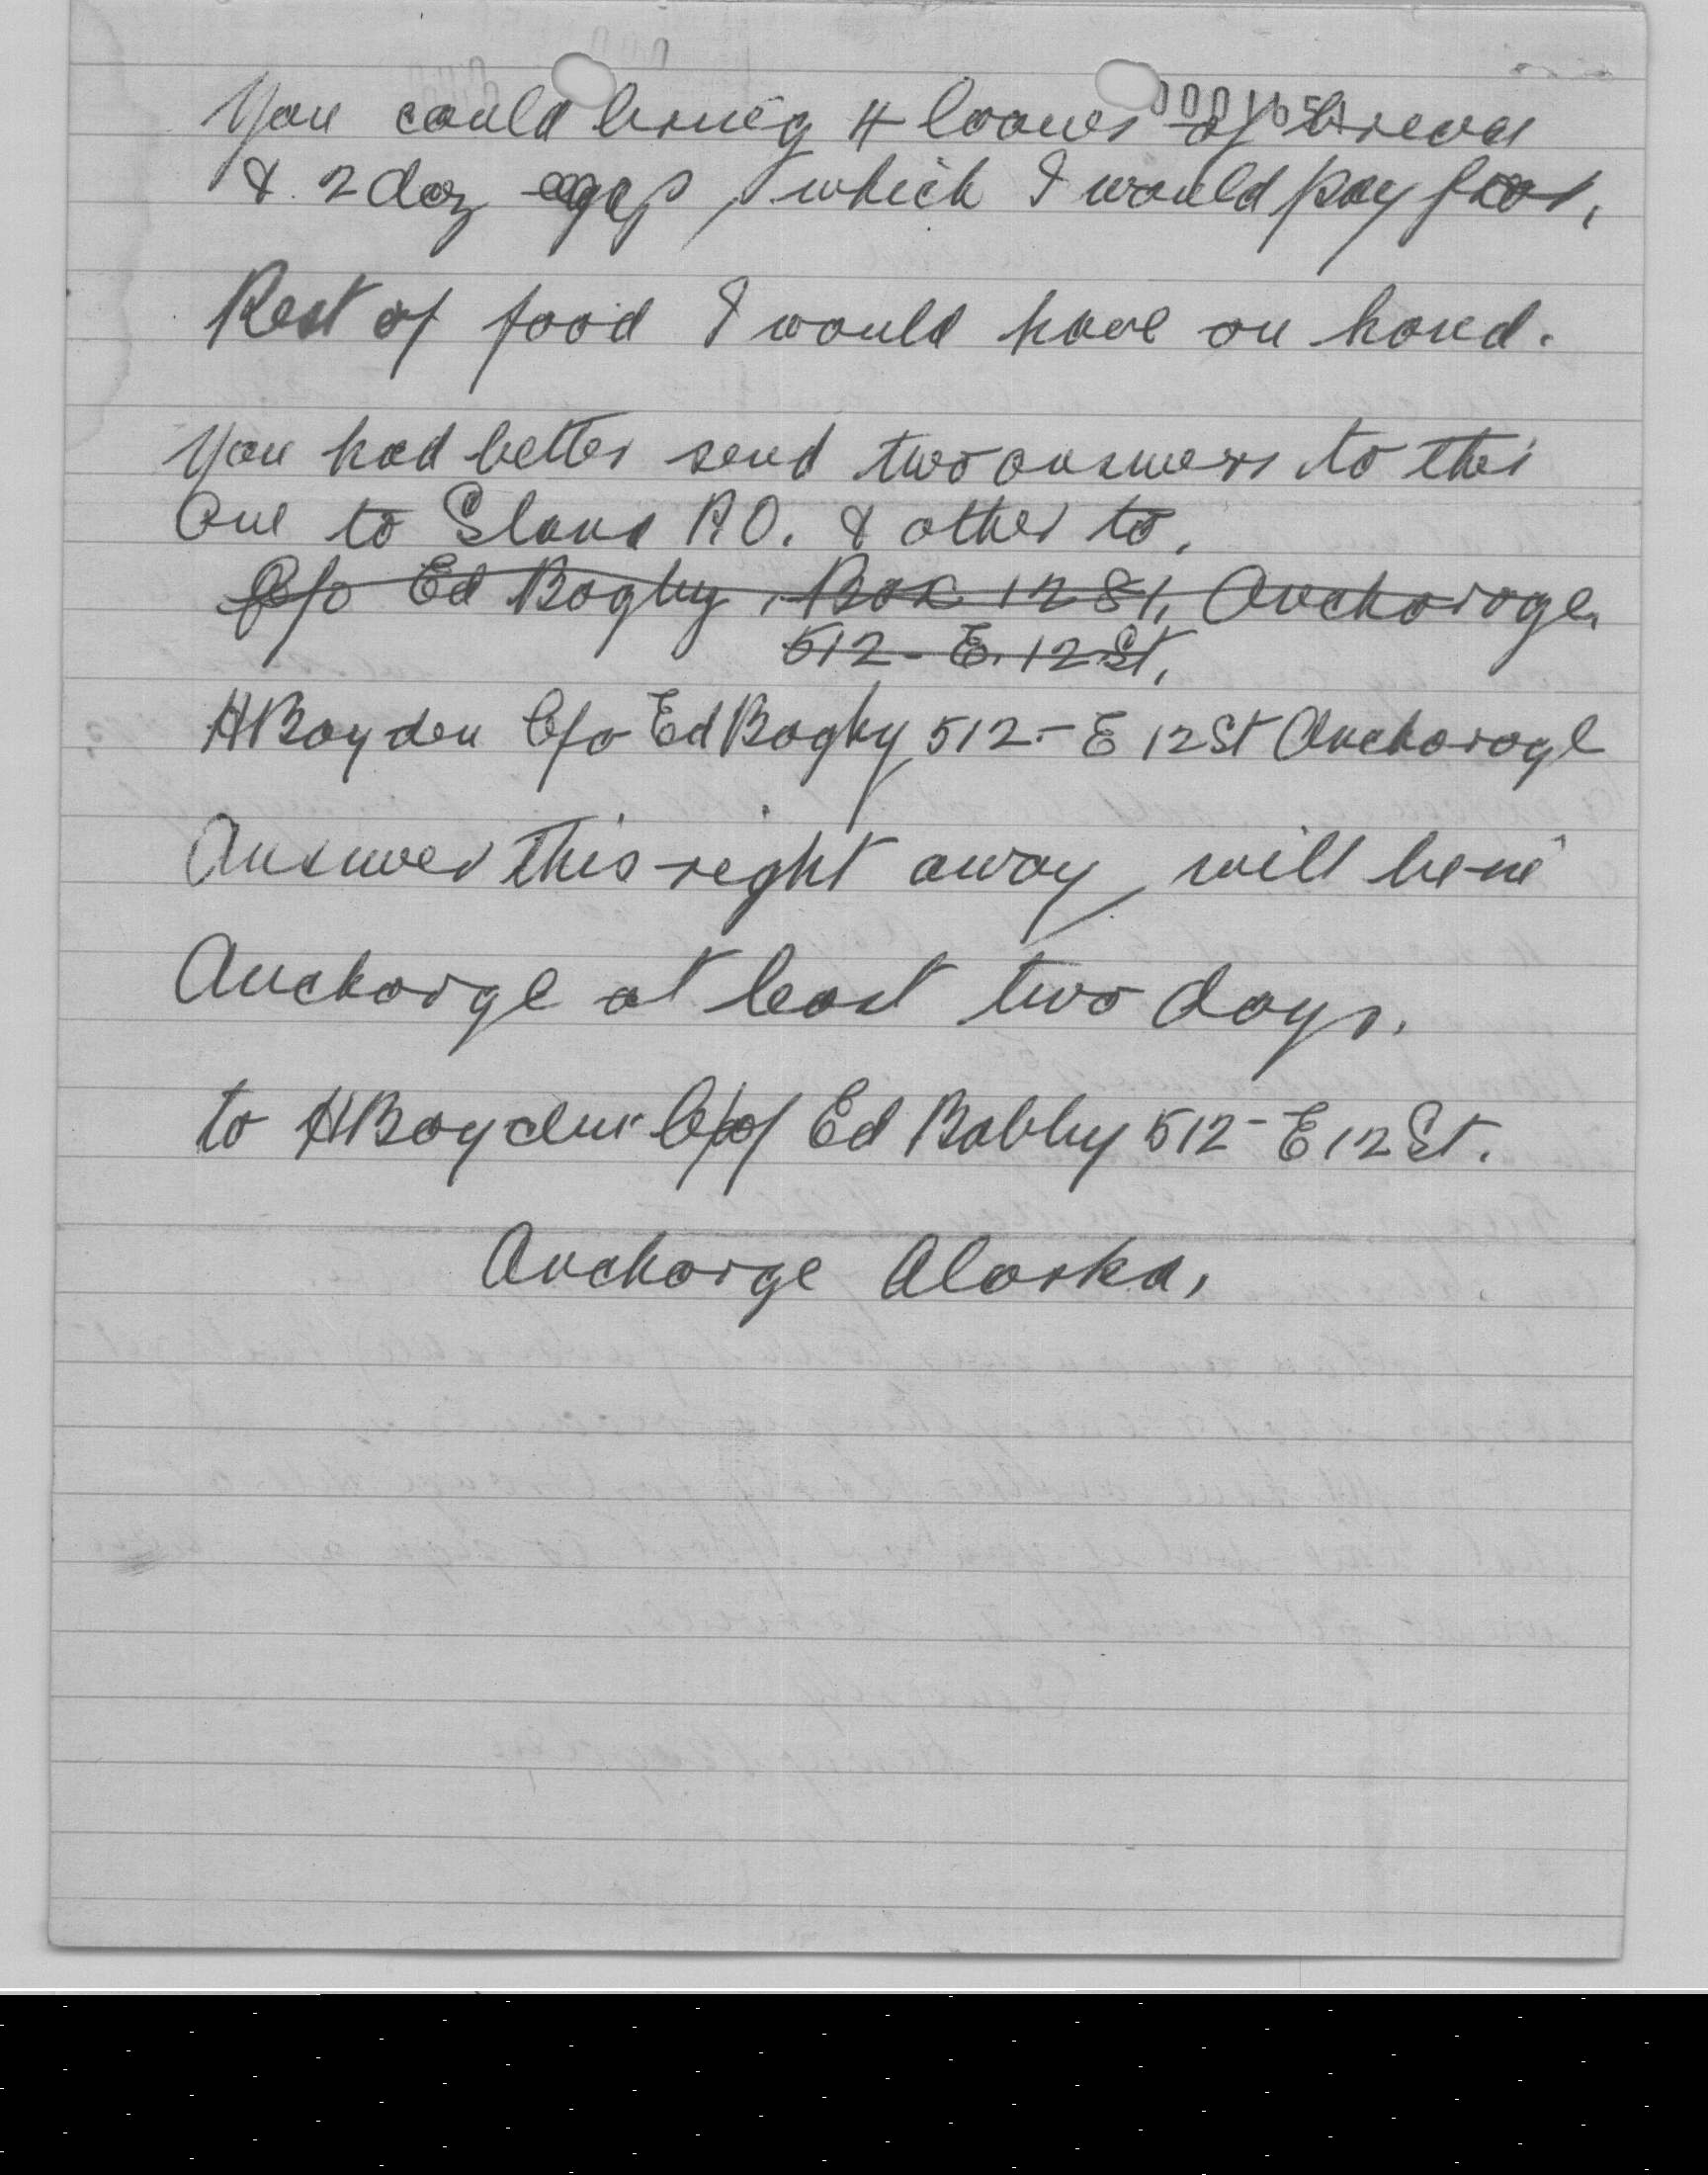 You could bring 4 loaves of bread
& 2 doz eggs, which I would pay for.
Rest of food I would have on hand.
You had better send two answers to this
One to Slana P.O. & other to,
C/o Ed Bagby, Box 1281, Anchorage,
512 - E. 12 St,
HBoyden C/o Ed Bagby, 512 - E 12 St Anchorage
Answer this right away, will be in
Anchorge at least two days.
to HBoyden C/o Ed Babby 512 - E 12 St.
Anchorge Alaska,